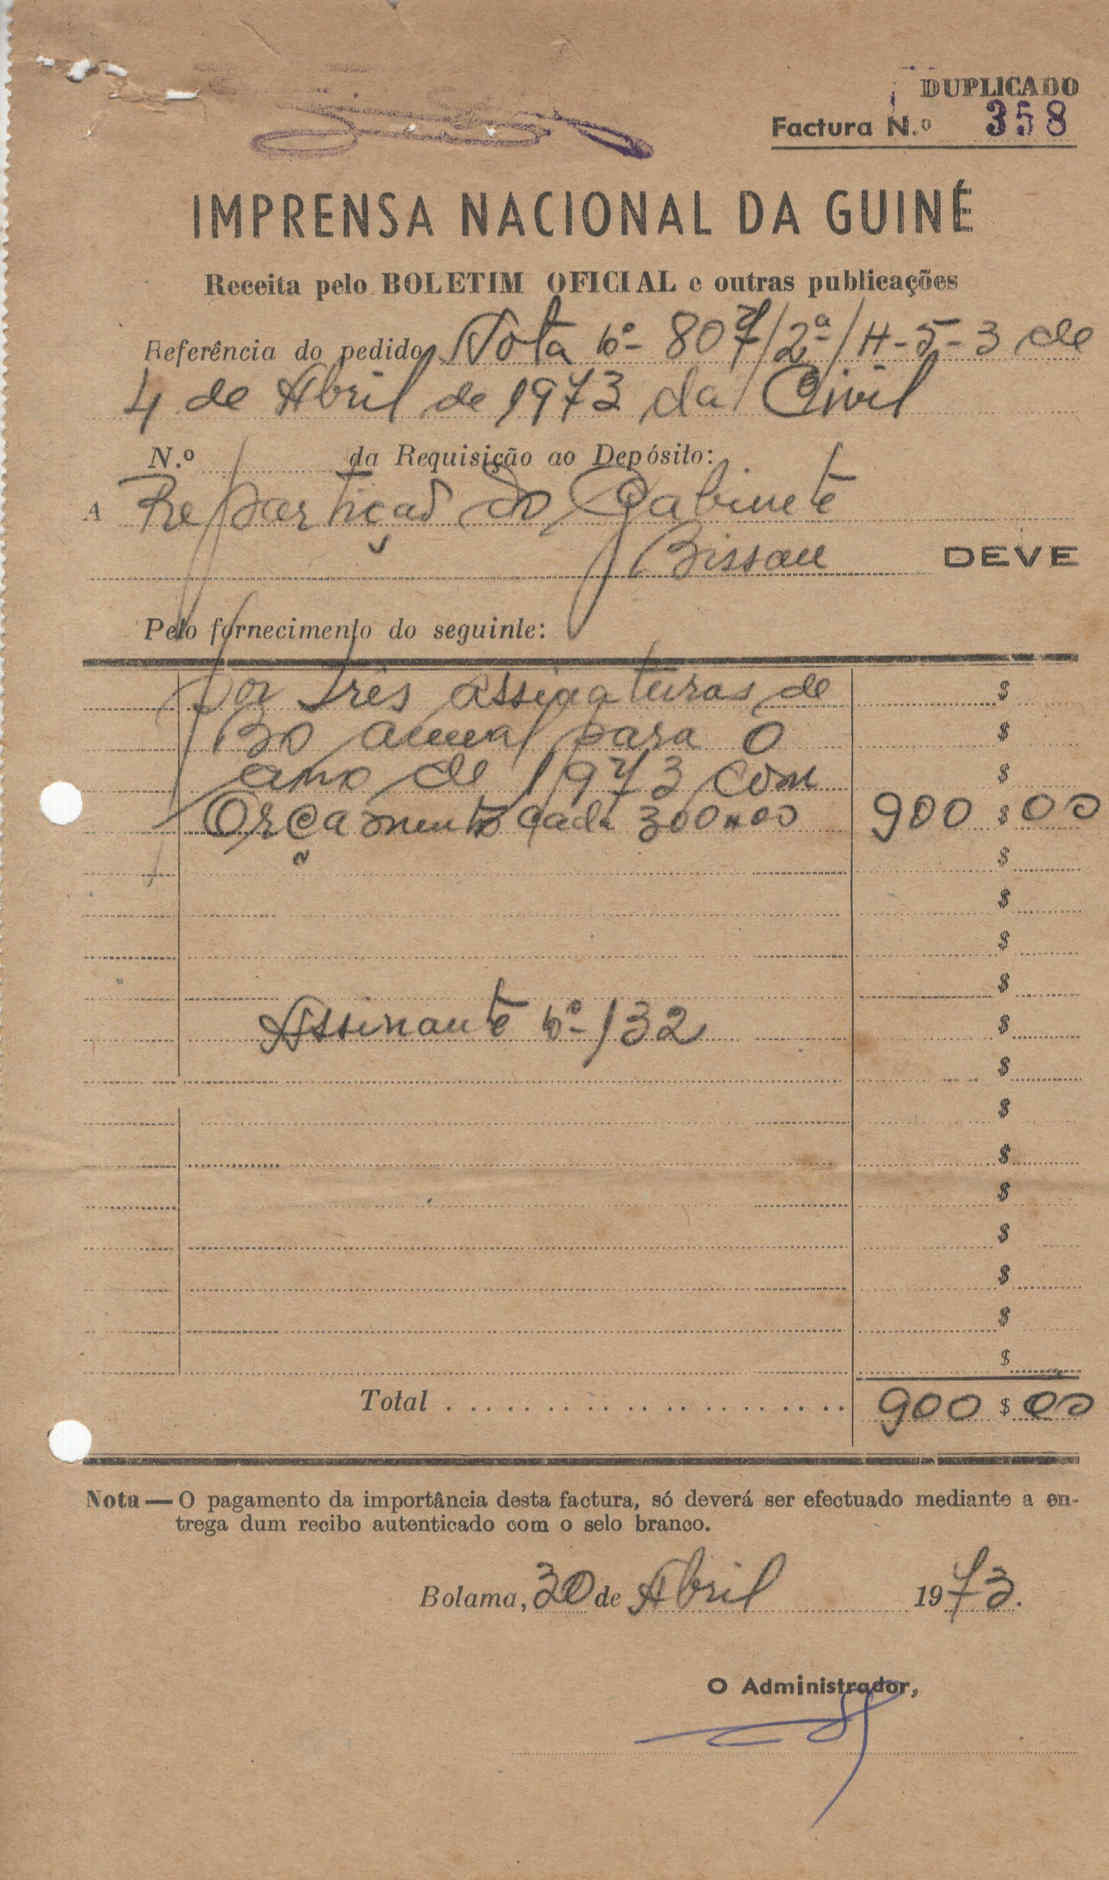 DUPLICADO
Factura N.º 358
IMPRENSA NACIONAL DA GUINÉ
Receita pelo BOLETIM OFICIAL e outras publicações
Referência do pedido Nota nº 807/2ª/H-5-3 de
4 de Abril de 1973 da Civil
N.º da Requisição ao Depósito:
A Repartição do Gabinete
Bissau DEVE
Pelo fornecimento do seguinte:
por Três assinaturas de $
BO anual para o $
ano de 1973 com $
Orçamento cada 300$00 900 $ 00
$
$
$
$
Assinante nº 132 $
$
$
$
$
$
$
$
$
Total 900 $ 00
Nota — O pagamento da importância desta factura, só deverá ser efectuado mediante a en-
trega dum recibo autenticado com o selo branco.
Bolama, 30 de Abril 1973.
O Administrador,